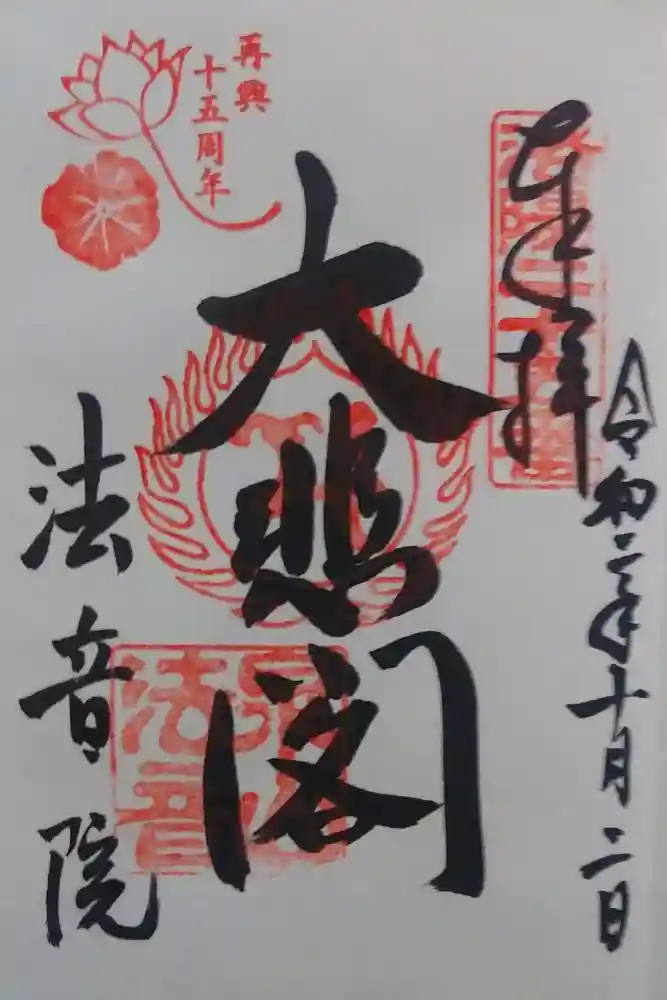 令和二年十月二日
奉拝
大悲閣
法音院
再興
十五周年